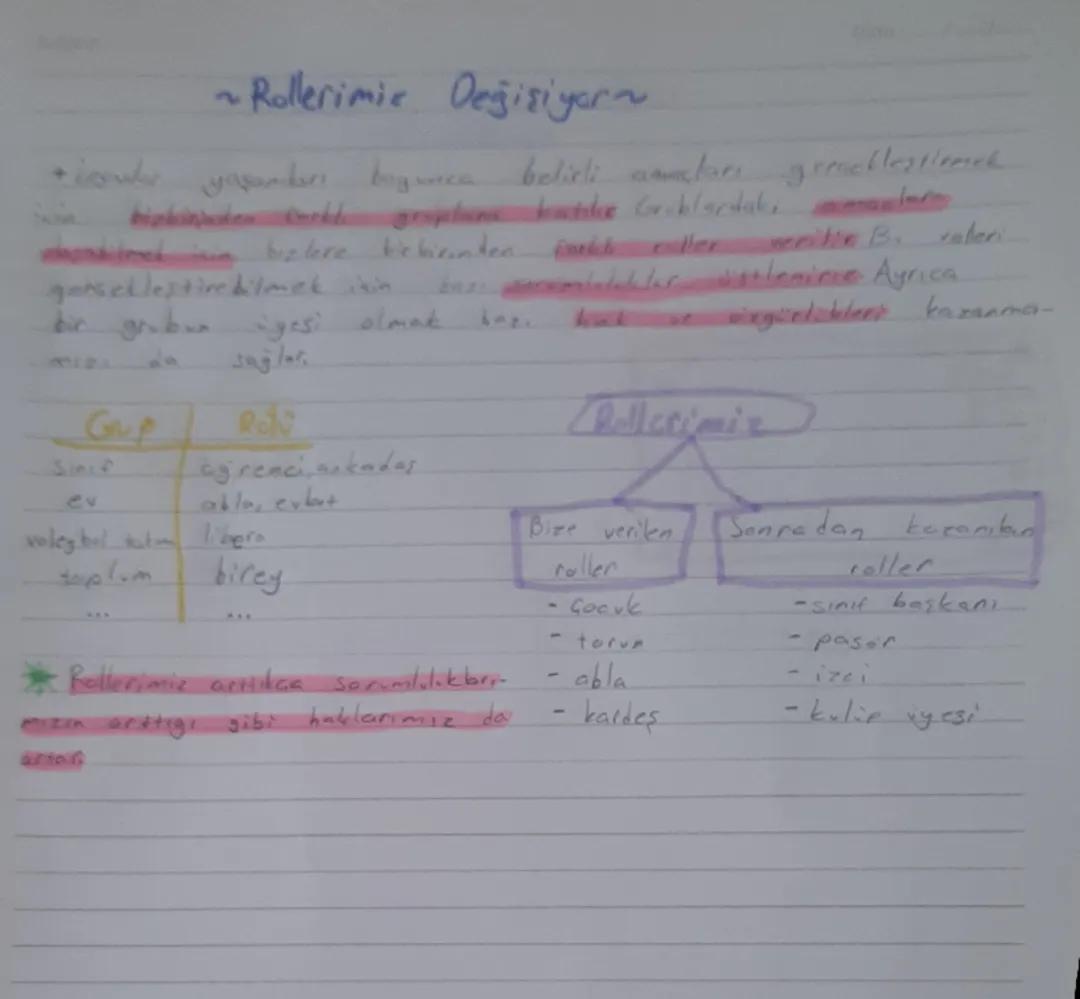 ~ Rollerimiz Değişiyor ~
+ insanlar yaşamları boyunca belirli amaçları gerçekleştirmek
için birbirinden farklı gruplara katılır. Grublardaki amaçlara
ulaşabilmek için bizlere birbirinden farklı roller verilir. Bu rolleri
gerçekleştirebilmek için bazı sorumluluklar üstleniriz. Ayrıca
bir grubun üyesi olmak bazı hak ve özgürlükleri kazanma-
mızı da sağlar.
Grup Rolü
sınıf öğrenci, arkadaş
ev abla, evlat
voleybol takımı libero
toplum birey
... ...
Rollerimiz arttıkça sorumlulukları-
mızın arttığı gibi haklarımız da
artar.
Rollerimiz
Bize verilen
roller
- çocuk
- torun
- abla
- kardeş
Sonradan kazanılan
roller
- sınıf başkanı
- pasör
- izci
- kulüp üyesi